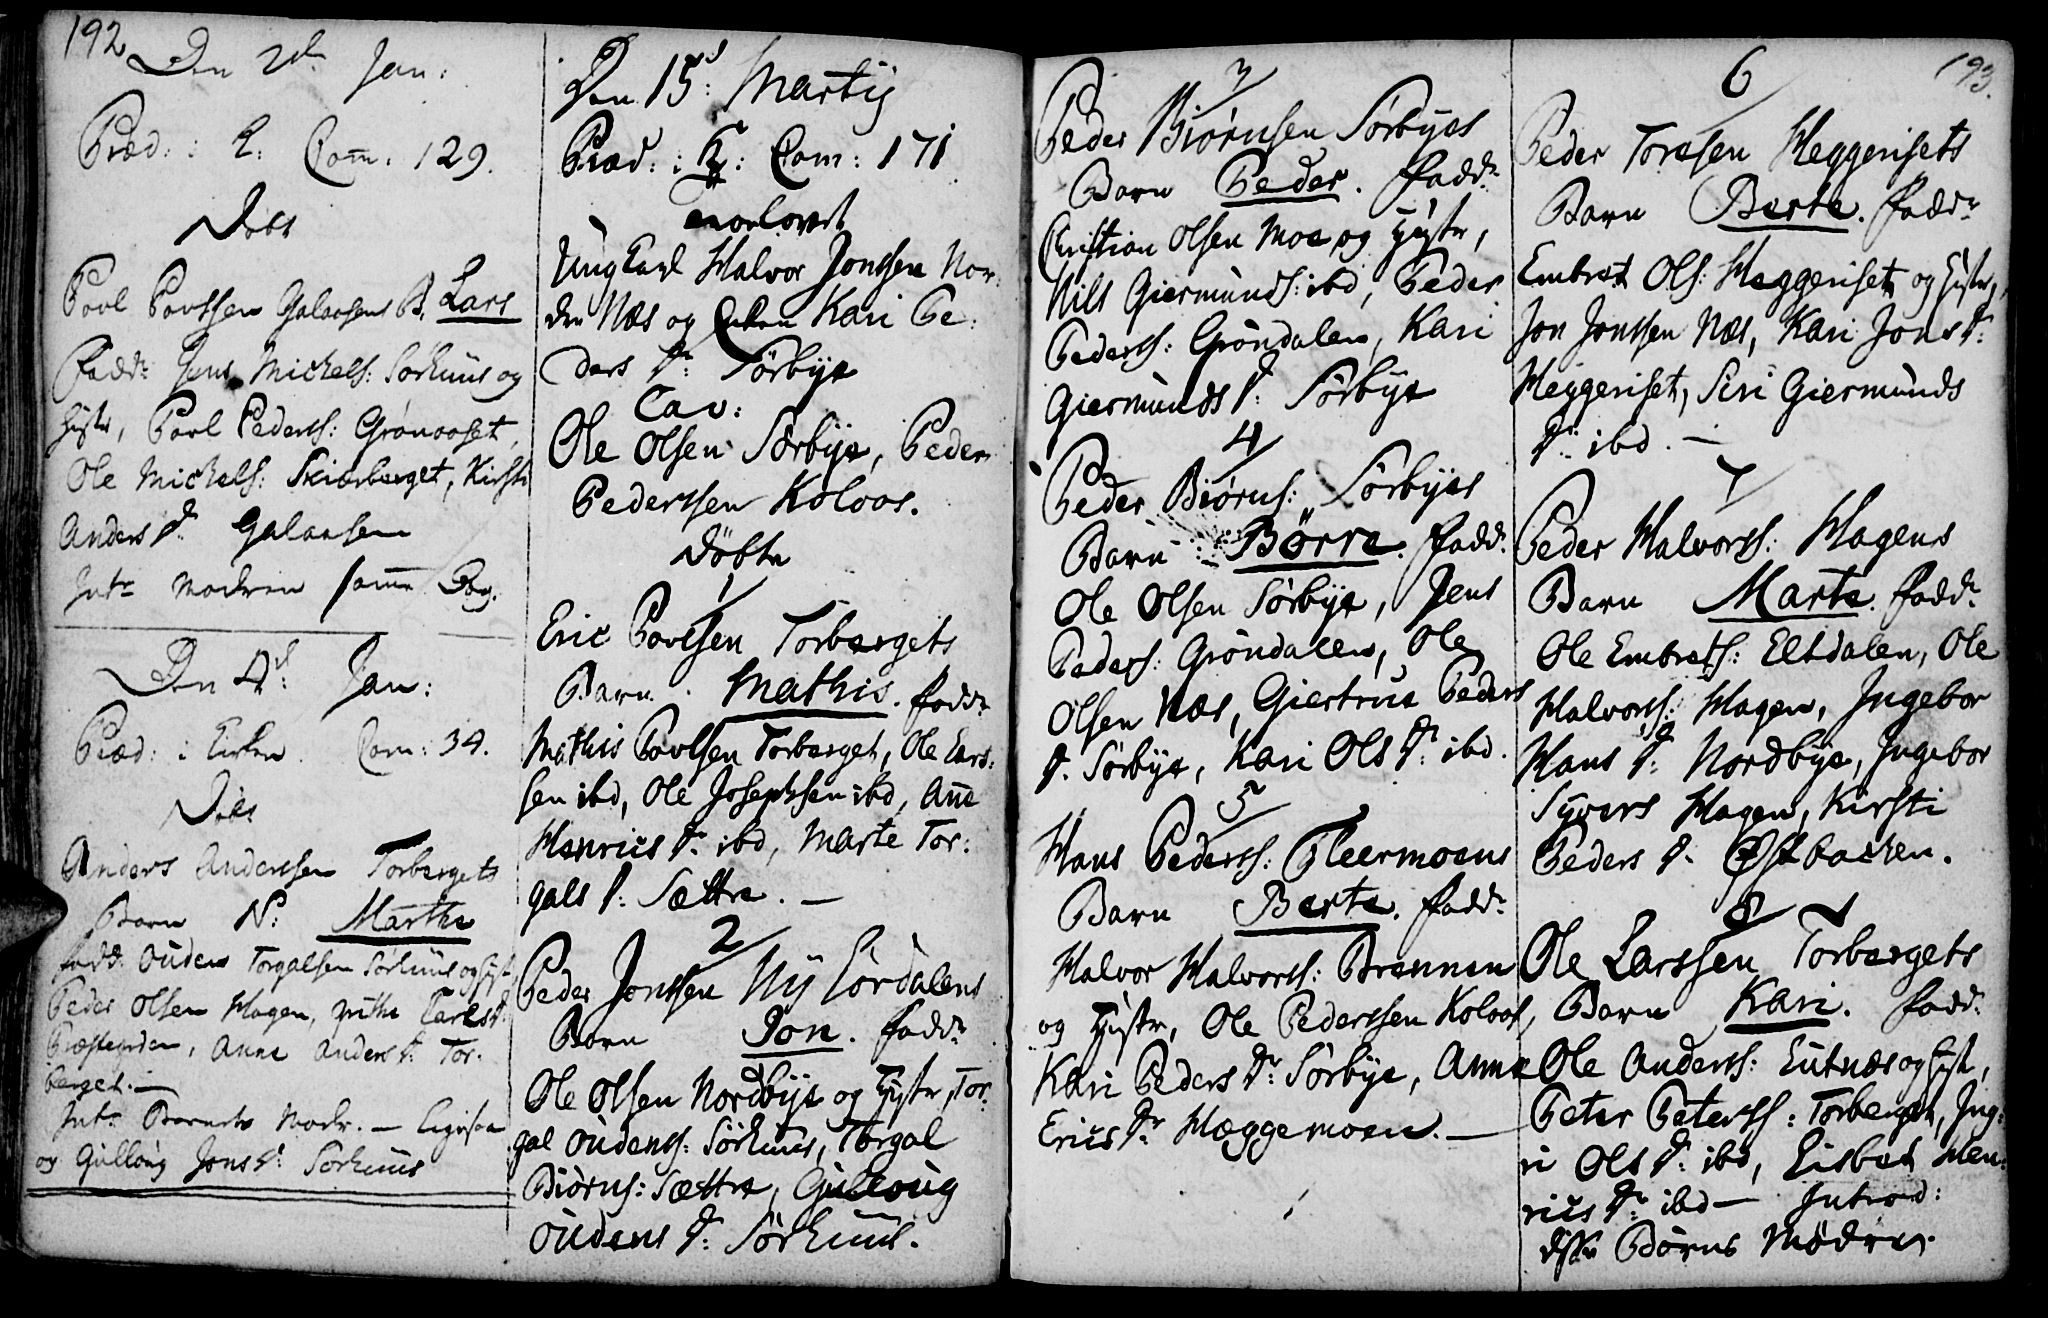 192
Den 2den Jan:
Præd: : L: Com: 129.
Döbt
Povl Povlssen Galaasens B. Lars
fadd: Jens Mickels: Sørhuus og
Hustr, Povl Peders: Grönaaset,
Ole Mickels: Skiærberget, Kirsti
Anders Dr: Galaasen
Intr: Modren samme Dag.
Den 4d: Jan:
Præd: i Kirken Com: 34.
Döbt
Anders Anderssen Torbergets
Barn N: Marthe
fadd: Oudens Torgalsen Sørhuus og Hust,
Peder Olsen Hagen,
Anne Anders Dr: Tor:
berget. —
Intr: Barnets Modr. —
og Gulloug Jons Dr: Sørhuus
Den 15d: Martij
Præd: : K: Com: 171
Troelovet
Ung Karl Halvor Jonssen Nor:
dre Næs og Enken Kari Pe:
ders Dr: Sörbÿe
Cav:
Ole Olsen Sörbÿe, Peder
Pederssen Koloos.
Döbte
1
Eric Povelsen Torbergets
Barn Mathis. fadd:
Mathis Povelsen Torberget, Ole Lars:
sen ibd, Ole Josephsen ibd, Anne
Henrics Dr: ibd, Marte Tor:
gals D: Sættre. —
2
Peder Jonssen Nÿ Lördalens
Barn Jon. fadd:
Ole Olsen Nordbÿe og Hustr, Tor:
gal Oudenss: Sørhuus, Torgal
Biørns: Sættre, Gulloug
Oudens Dr: Sørhuus.
3
Peder Biørnsen Sörbÿes
Barn Peder. fadd:
Christian Olsen Moe og Hustr,
Nils Giermunds: ibd, Peder
Pederss: Gröndalen, Kari
Giermunds Dr: Sörbÿe
4
Peder Biørns: Sörbÿes
Barn Børre. fadd:
Ole Olsen Sörbÿe, Jens
Peders: Gröndalen, Ole
Olsen Næs, Giertrue Peders
D. Sörbÿe, Kari Ols Dr: ibd.
5
Hans Pederss: Fleermoens
Barn Berte. fadd:
Halvor Halvorss: Brennen
og Hustr, Ole Pederssen Koloos,
Kari Peders Dr: Sörbÿe, Anne
Erics Dr: Hæggemoen. —
193.
6
Peder Toresen Heggerisets
Barn Berte. fadd:
Embret Ols: Heggeriset og Hustr,
Jon Jonssen Næs, Kari Jons Dr:
Heggeriset, Siri Giermunds
Dr: ibd. —
7
Peder Halvorss: Hagens
Barn Marte. fadd:
Ole Embrets: Eltdalen, Ole
Halvorss: Hagen, Ingebor
Hans Dr: Nordbÿe, Ingebor
Syvers Hagen, Kirsti
Peders Dr: Østbacken.
8
Ole Larssen Torbergets
Barn Kari. fadd:
Ole Anderss: Lutnæs og Hust,
Peter Peterss: Torberget, Ing:
ri Ols Dr: ibd, Lisbet Hen:
rics Dr: ibd — Introd:
disse Børns Mødre.